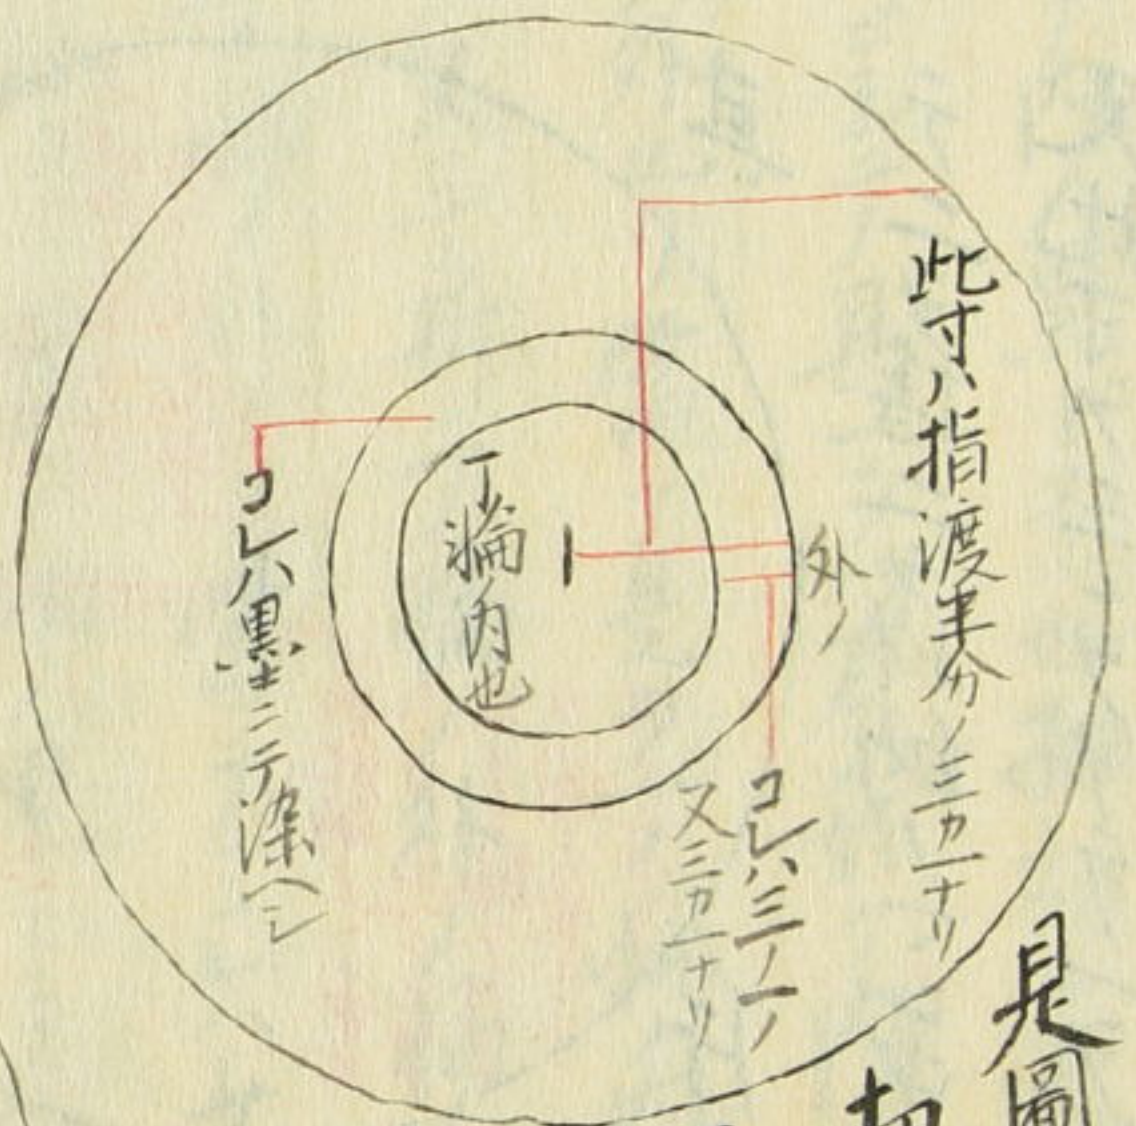 此寸ハ指渡半分ノ三カ一ナリ
外ノ
コレハ三ノ一ノ
又三カ一ナリ
丁輪ノ内也
コレハ黒ニテ染ヘシ
見圖